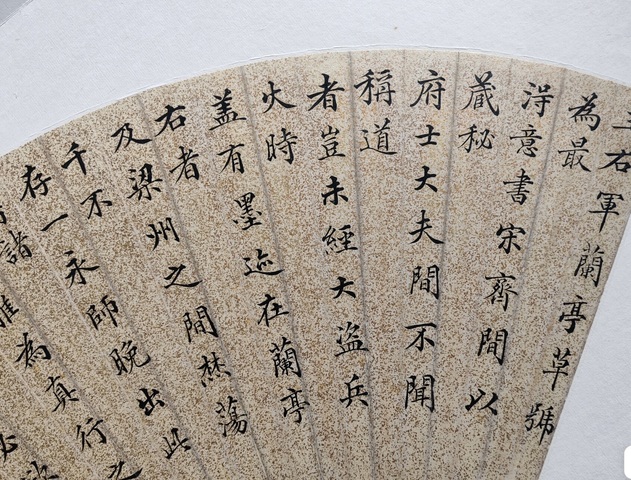 王右軍蘭亭草號
為最
得意書宋齊間以
藏秘
府士大夫間不聞
稱道
者豈未經大盜兵
火時
盖有墨迹在蘭亭
右者
及梁州之間焚蕩
千不
存一永師晚出此
諸
為真行之